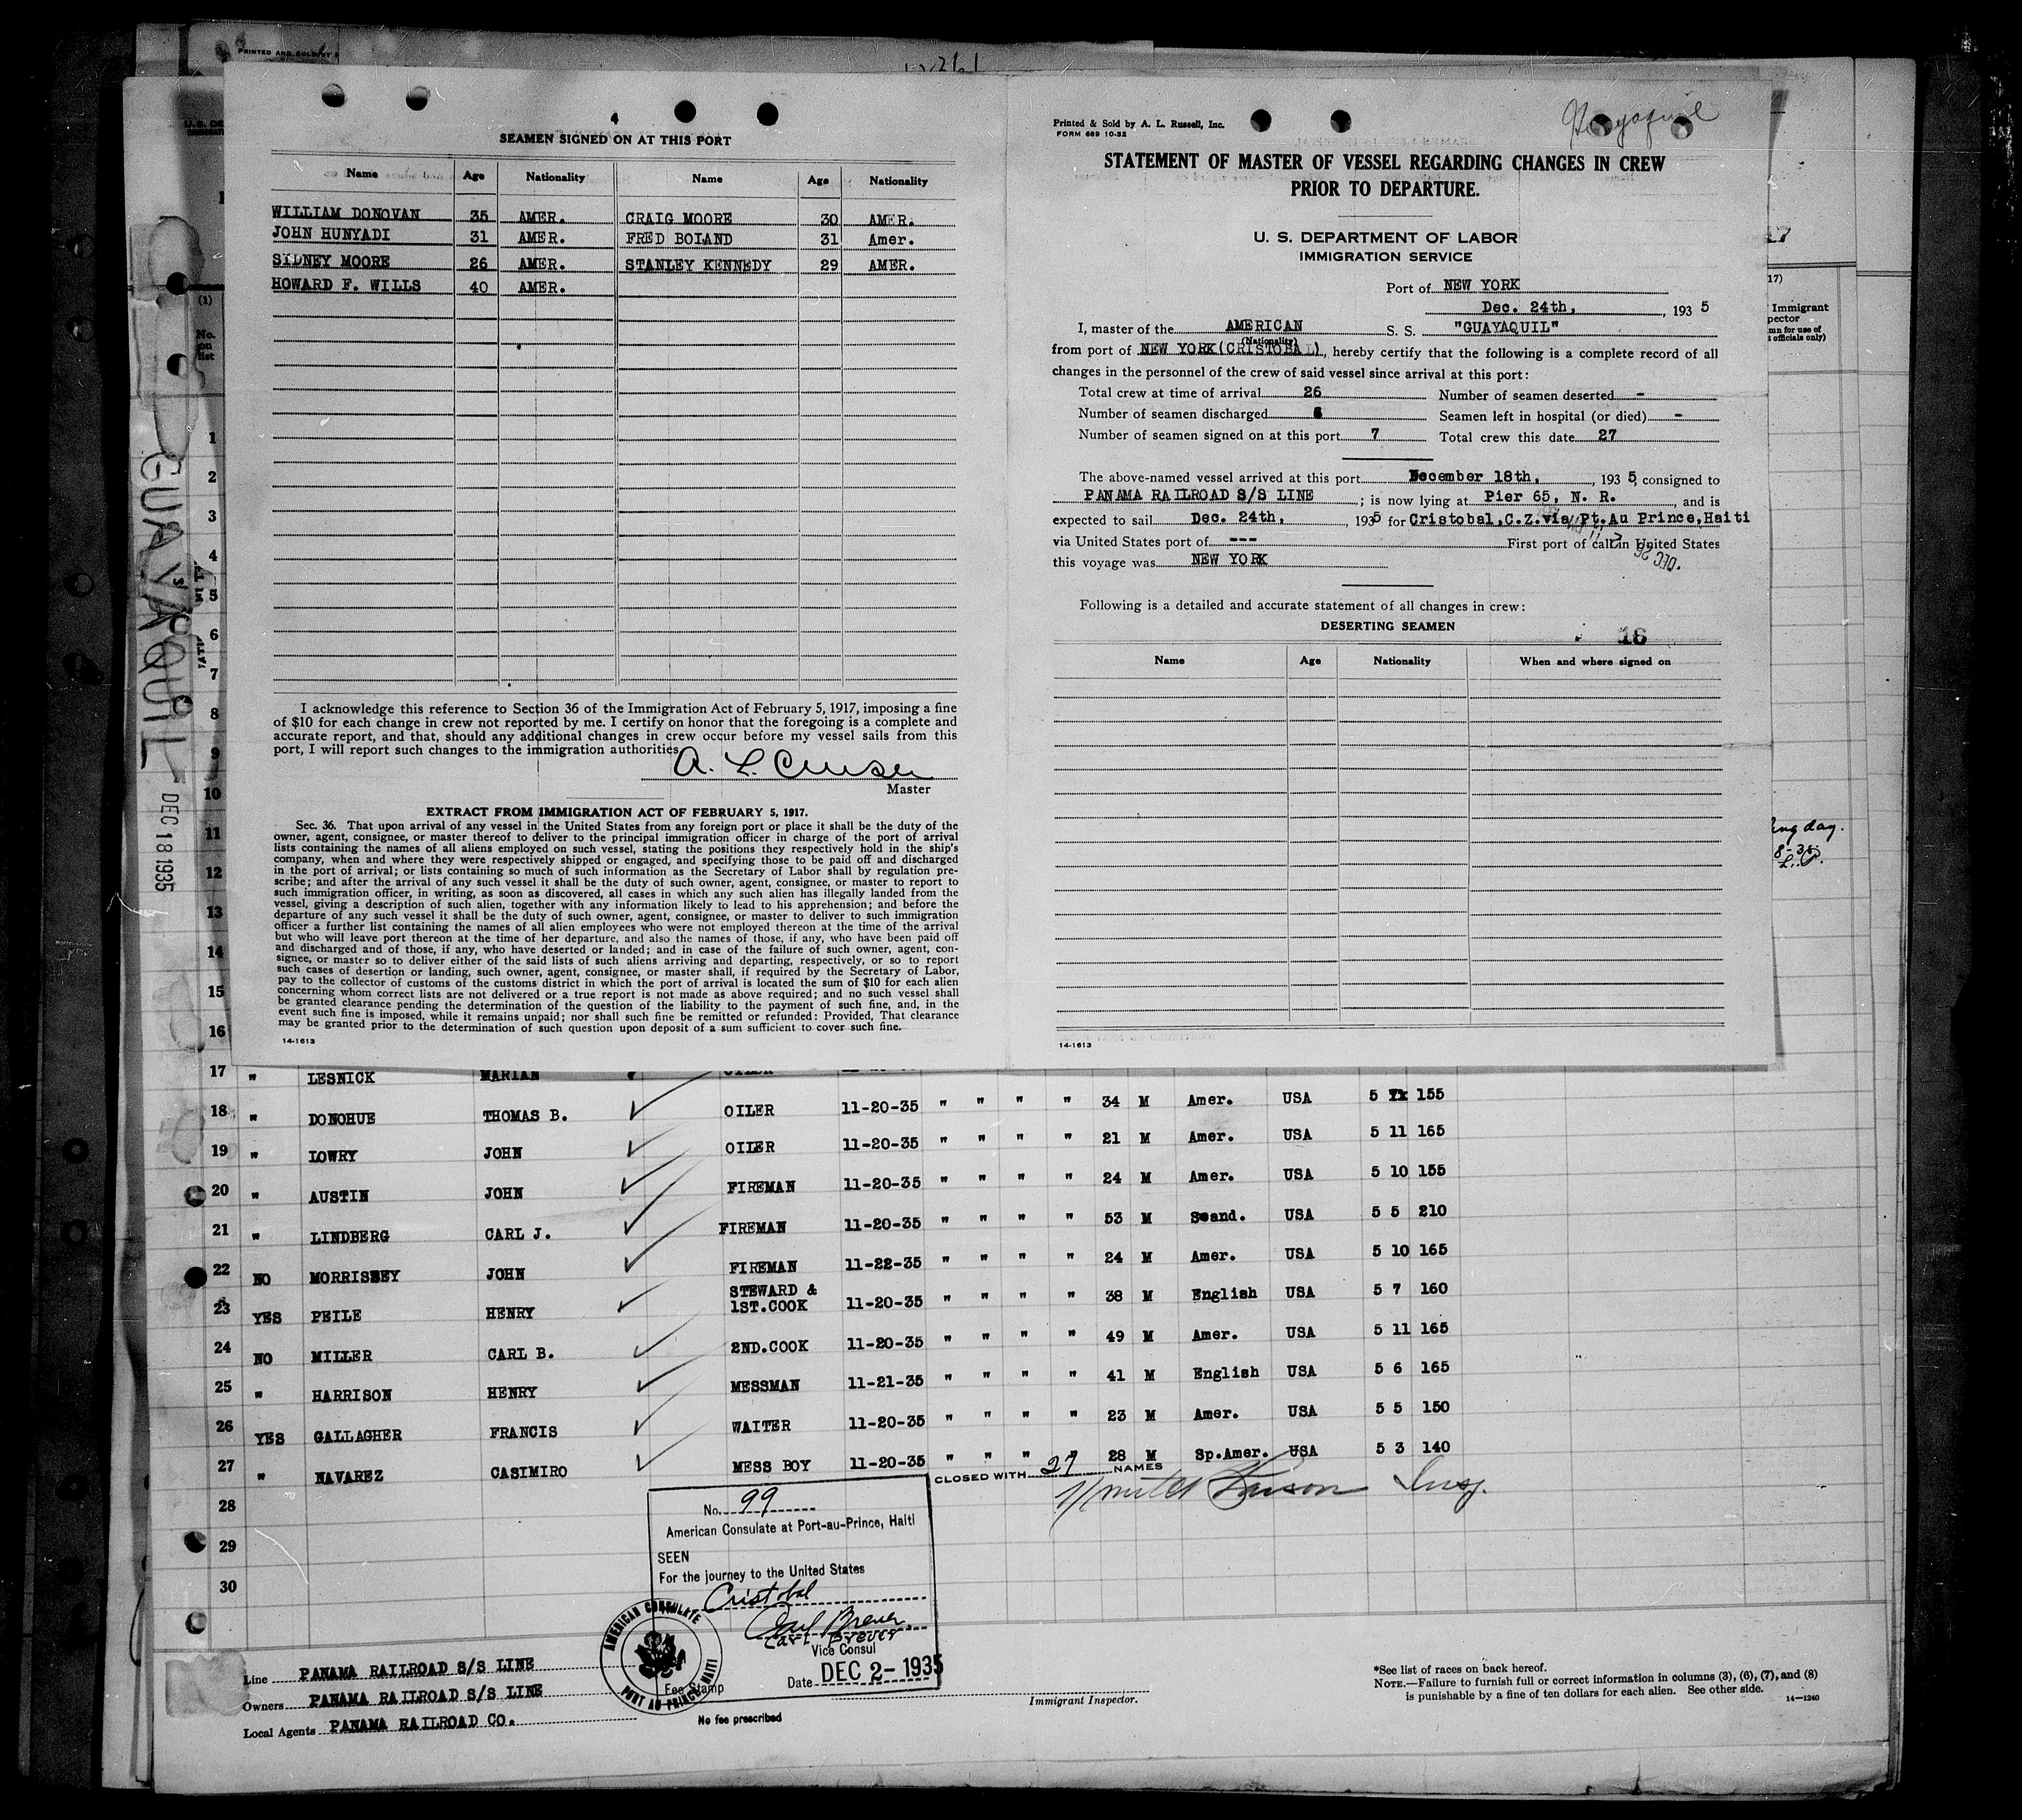 PRINTED AND SOLD BY
4
SEAMEN SIGNED ON AT THIS PORT
Name Age Nationality Name Age Nationality
WILLIAM DONOVAN 35 AMER. CRAIG MOORE 30 AMER.
JOHN HUNYADI 31 AMER. FRED BOLAND 31 Amer.
SIDNEY MOORE 26 AMER. STANLEY KENNEDY 29 AMER.
HOWARD F. WILLS 40 AMER.
I acknowledge this reference to Section 36 of the Immigration Act of February 5, 1917, imposing a fine
of $10 for each change in crew not reported by me. I certify on honor that the foregoing is a complete and
accurate report, and that, should any additional changes in crew occur before my vessel sails from this
port, I will report such changes to the immigration authorities.
Master
EXTRACT FROM IMMIGRATION ACT OF FEBRUARY 5, 1917.
Sec. 36. That upon arrival of any vessel in the United States from any foreign port or place it shall be the duty of the
owner, agent, consignee, or master thereof to deliver to the principal immigration officer in charge of the port of arrival
lists containing the names of all aliens employed on such vessel, stating the positions they respectively hold in the ship's
company, when and where they were respectively shipped or engaged, and specifying those to be paid off and discharged
in the port of arrival; or lists containing so much of such information as the Secretary of Labor shall by regulation pre-
scribe; and after the arrival of any such vessel it shall be the duty of such owner, agent, consignee, or master to report to
such immigration officer, in writing, as soon as discovered, all cases in which any such alien has illegally landed from the
vessel, giving a description of such alien, together with any information likely to lead to his apprehension; and before the
departure of any such vessel it shall be the duty of such owner, agent, consignee, or master to deliver to such immigration
officer a further list containing the names of all alien employees who were not employed thereon at the time of the arrival
but who will leave port thereon at the time of her departure, and also the names of those, if any, who have been paid off
and discharged and of those, if any, who have deserted or landed; and in case of the failure of such owner, agent, con-
signee, or master so to deliver either of the said lists of such aliens arriving and departing, respectively, or so to report
such cases of desertion or landing, such owner, agent, consignee, or master shall, if required by the Secretary of Labor,
pay to the collector of customs of the customs district in which the port of arrival is located the sum of $10 for each alien
concerning whom correct lists are not delivered or a true report is not made as above required; and no such vessel shall
be granted clearance pending the determination of the question of the liability to the payment of such fine, and, in the
event such fine is imposed, while it remains unpaid; nor shall such fine be remitted or refunded: Provided, That clearance
may be granted prior to the determination of such question upon deposit of a sum sufficient to cover such fine.
14-1613
Guayaquil
Printed & Sold by A. L. Russell, Inc.
FORM 689 10-32
STATEMENT OF MASTER OF VESSEL REGARDING CHANGES IN CREW
PRIOR TO DEPARTURE.
U. S. DEPARTMENT OF LABOR
IMMIGRATION SERVICE
Port of NEW YORK
Dec. 24th, , 193 5
I, master of the AMERICAN S. S. "GUAYAQUIL"
(Nationality)
from port of NEW YORK(CRISTOBAL), hereby certify that the following is a complete record of all
changes in the personnel of the crew of said vessel since arrival at this port:
Total crew at time of arrival 26 Number of seamen deserted -
Number of seamen discharged 6 Seamen left in hospital (or died) -
Number of seamen signed on at this port 7 Total crew this date 27
The above-named vessel arrived at this port December 18th, , 193 5, consigned to
PANAMA RAILROAD S/S LINE ; is now lying at Pier 65, N. R. , and is
expected to sail Dec. 24th, , 1935 for Cristobal,C.Z.via Pt.Au Prince,Haiti
via United States port of --- First port of call in United States
this voyage was NEW YORK
DEC 26
Following is a detailed and accurate statement of all changes in crew:
DESERTING SEAMEN
16
Name Age Nationality When and where signed on
14-1613
(1)
No. on list
GUAYAQUIL
DEC 18 1935
1
2
3
4
5
6
7
8
9
10
11
12
13
14
15
16
17 " LESNICK MARIAN OILER
18 " DONOHUE THOMAS B. OILER 11-20-35 " " " " 34 M Amer. USA 5 155
19 " LOWRY JOHN OILER 11-20-35 " " " " 21 M Amer. USA 5 11 165
20 " AUSTIN JOHN FIREMAN 11-20-35 " " " " 24 M Amer. USA 5 10 155
21 " LINDBERG CARL J. FIREMAN 11-20-35 " " " " 53 M Scand. USA 5 5 210
22 NO MORRISSEY JOHN FIREMAN 11-22-35 " " " " 24 M Amer. USA 5 10 165
23 YES PEILE HENRY STEWARD & 1ST.COOK 11-20-35 " " " " 38 M English USA 5 7 160
24 NO MILLER CARL B. 2ND.COOK 11-20-35 " " " " 49 M Amer. USA 5 11 165
25 " HARRISON HENRY MESSMAN 11-21-35 " " " " 41 M English USA 5 6 165
26 YES GALLAGHER FRANCIS WAITER 11-20-35 " " " " 23 M Amer. USA 5 5 150
27 " NAVAREZ CASIMIRO MESS BOY 11-20-35 " " " " 28 M Sp.Amer. USA 5 3 140
28
29
30
CLOSED WITH 27 NAMES
Insp.
No. 99
American Consulate at Port-au-Prince, Haiti
SEEN
For the journey to the United States
Cristobal
Carl Breuer
Carl Breuer
Vice Consul
Date DEC 2-1935
AMERICAN CONSULATE
PORT AU PRINCE, HAITI
Fee Stamp
No fee prescribed
Line PANAMA RAILROAD S/S LINE
Owners PANAMA RAILROAD S/S LINE
Local Agents PANAMA RAILROAD CO.
Immigrant Inspector.
*See list of races on back hereof.
NOTE.—Failure to furnish full or correct information in columns (3), (6), (7), and (8)
is punishable by a fine of ten dollars for each alien. See other side.
14—1240